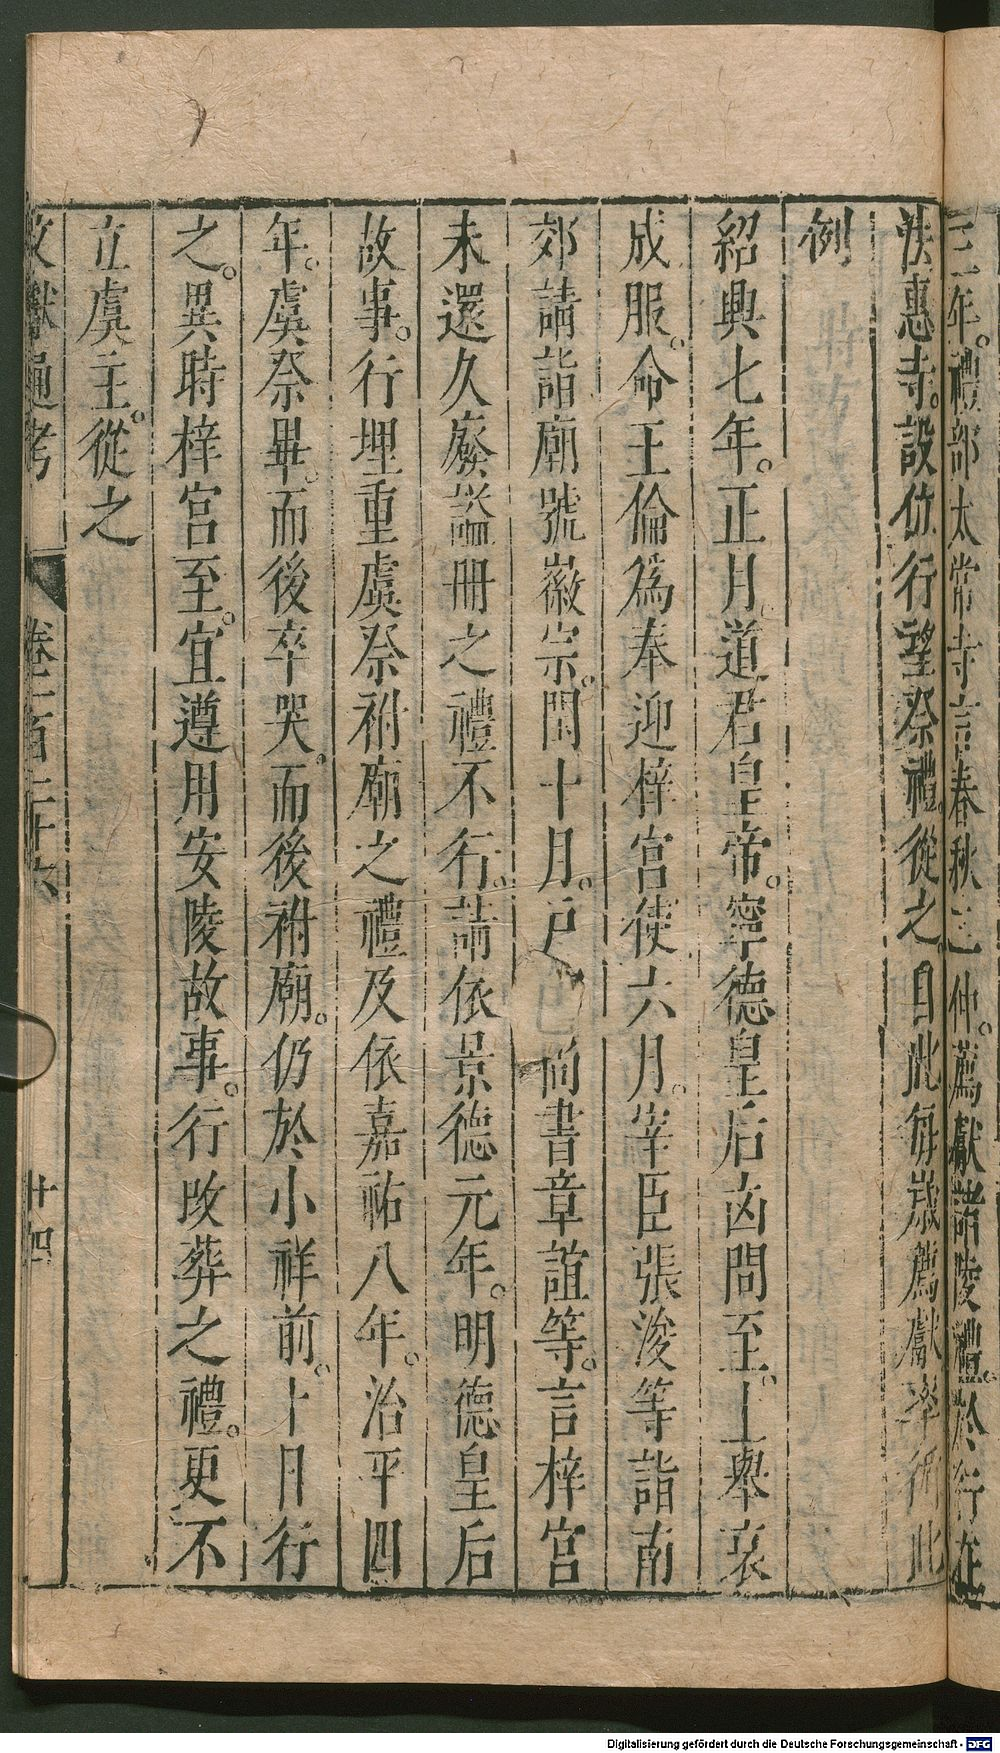 三年。禮部太常寺言。春秋二仲。薦獻諸陵禮。於行在
法惠寺。設位行望祭禮。從之。自此每歲薦獻率循此
例
紹興七年。正月。道君皇帝。寧德皇后凶問至。上舉哀
成服。命王倫爲奉迎梓宮使六月。宰臣張浚等詣南
郊請諡廟號徽宗。閏十月。戶尚書章誼等。言梓宮
未還久廢諡冊之禮不行。請依景德元年。明德皇后
故事。行埋重虞祭祔廟之禮及依嘉祐八年。治平四
年。虞祭畢。而後卒哭。而後祔廟。仍於小祥前。十月行
之。異時梓宮至。宜遵用安陵故事。行改葬之禮。更不
立虞主。從之
文獻通考
卷一百二十六
廿四
Digitalisierung gefördert durch die Deutsche Forschungsgemeinschaft - DFG